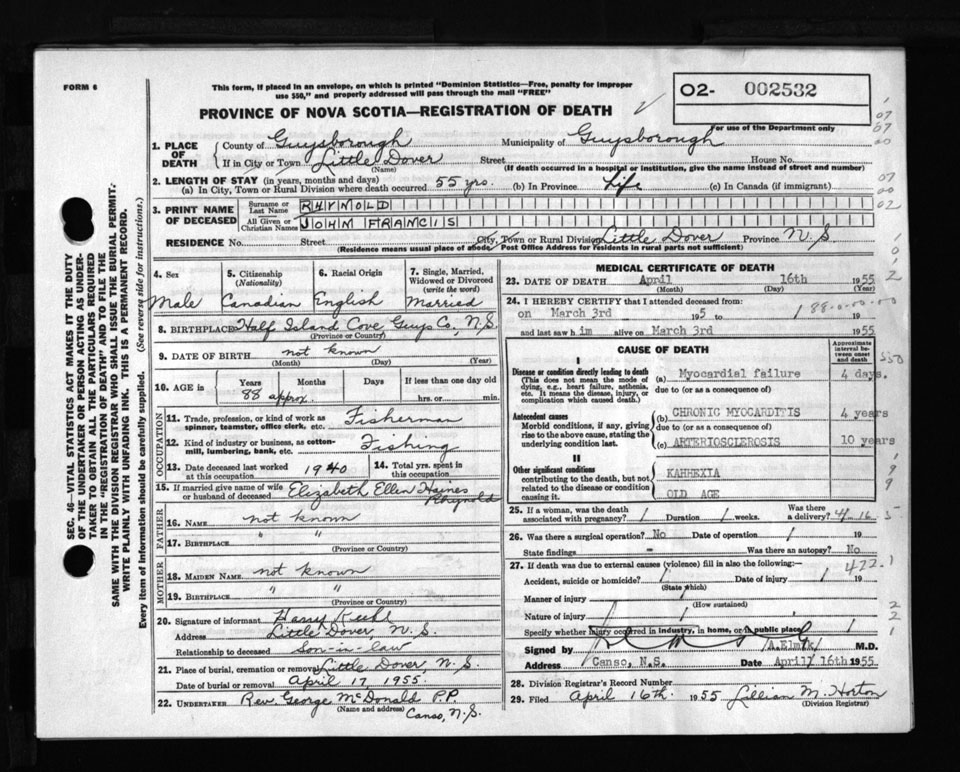 FORM 6
This form, if placed in an envelope, on which is printed "Dominion Statistics—Free, penalty for improper
use $50," and properly addressed will pass through the mail "FREE"
PROVINCE OF NOVA SCOTIA—REGISTRATION OF DEATH
O2- 002532
For use of the Department only
SEC. 46—VITAL STATISTICS ACT MAKES IT THE DUTY
OF THE UNDERTAKER OR PERSON ACTING AS UNDER-
TAKER TO OBTAIN ALL THE PARTICULARS REQUIRED
IN THE "REGISTRATION OF DEATH" AND TO FILE THE
SAME WITH THE DIVISION REGISTRAR WHO SHALL ISSUE THE BURIAL PERMIT.
WRITE PLAINLY WITH UNFADING INK. THIS IS A PERMANENT RECORD.
Every item of information should be carefully supplied. (See reverse side for instructions.)
1. PLACE OF DEATH County of Guysborough Municipality of Guysborough
If in City or Town Little Dover Street House No.
(Name) (If death occurred in a hospital or institution, give the name instead of street and number)
2. LENGTH OF STAY (in years, months and days)
(a) In City, Town or Rural Division where death occurred 55 yrs. (b) In Province Life (c) In Canada (if immigrant)
3. PRINT NAME OF DECEASED Surname or Last Name RHYNOLD
All Given or Christian Names JOHN FRANCIS
RESIDENCE No. Street City, Town or Rural Division Little Dover Province N.S
(Residence means usual place of abode. Post Office Address for residents in rural parts not sufficient)
4. Sex Male
5. Citizenship (Nationality) Canadian
6. Racial Origin English
7. Single, Married, Widowed or Divorced (write the word) Married
8. BIRTHPLACE Half Island Cove, Guys Co, N.S.
(Province or Country)
9. DATE OF BIRTH not known
(Month) (Day) (Year)
10. AGE in Years Months Days If less than one day old
88 approx. hrs. or min.
OCCUPATION
11. Trade, profession, or kind of work as spinner, teamster, office clerk, etc. Fisherman
12. Kind of industry or business, as cotton-mill, lumbering, bank, etc. Fishing
13. Date deceased last worked at this occupation 1940
14. Total yrs. spent in this occupation
15. If married give name of wife or husband of deceased Elizabeth Ellen Haines Rhynold
FATHER
16. NAME not known
17. BIRTHPLACE " "
(Province or Country)
MOTHER
18. MAIDEN NAME not known
19. BIRTHPLACE " "
(Province or Country)
20. Signature of informant Harry Kuhl
Address Little Dover, N.S.
Relationship to deceased Son-in-law
21. Place of burial, cremation or removal Little Dover, N.S.
Date of burial or removal April 17, 1955.
22. UNDERTAKER Rev. George McDonald P.P.
(Name and address) Canso, N.S.
MEDICAL CERTIFICATE OF DEATH
23. DATE OF DEATH April 16th 1955
(Month) (Day) (Year)
24. I HEREBY CERTIFY that I attended deceased from:
on March 3rd 195 to 19
and last saw him alive on March 3rd 1955
CAUSE OF DEATH
Approximate interval between onset and death
I
Disease or condition directly leading to death (a) Myocardial failure 4 days.
(This does not mean the mode of dying, e.g., heart failure, asthenia, etc. It means the disease, injury, or complication which caused death.) due to (or as a consequence of)
Antecedent causes (b) CHRONIC MYOCARDITIS 4 years
Morbid conditions, if any, giving rise to the above cause, stating the underlying condition last. due to (or as a consequence of)
(c) ARTERIOSCLEROSIS 10 years
II
Other significant conditions contributing to the death, but not related to the disease or condition causing it. KAHHEXIA
OLD AGE
25. If a woman, was the death associated with pregnancy? Duration weeks. Was there a delivery? 4-16
26. Was there a surgical operation? No Date of operation 19
State findings - Was there an autopsy? No
27. If death was due to external causes (violence) fill in also the following:— 422.1
Accident, suicide or homicide? Date of injury 19
(State which)
Manner of injury
(How sustained)
Nature of injury
Specify whether injury occurred in industry, in home, or in public place
Signed by /A.Elmik/ M.D.
Address Canso, N.S. Date April/ 16th 1955
28. Division Registrar's Record Number
29. Filed April 16th. 1955 Lillian M. Horton
(Division Registrar)